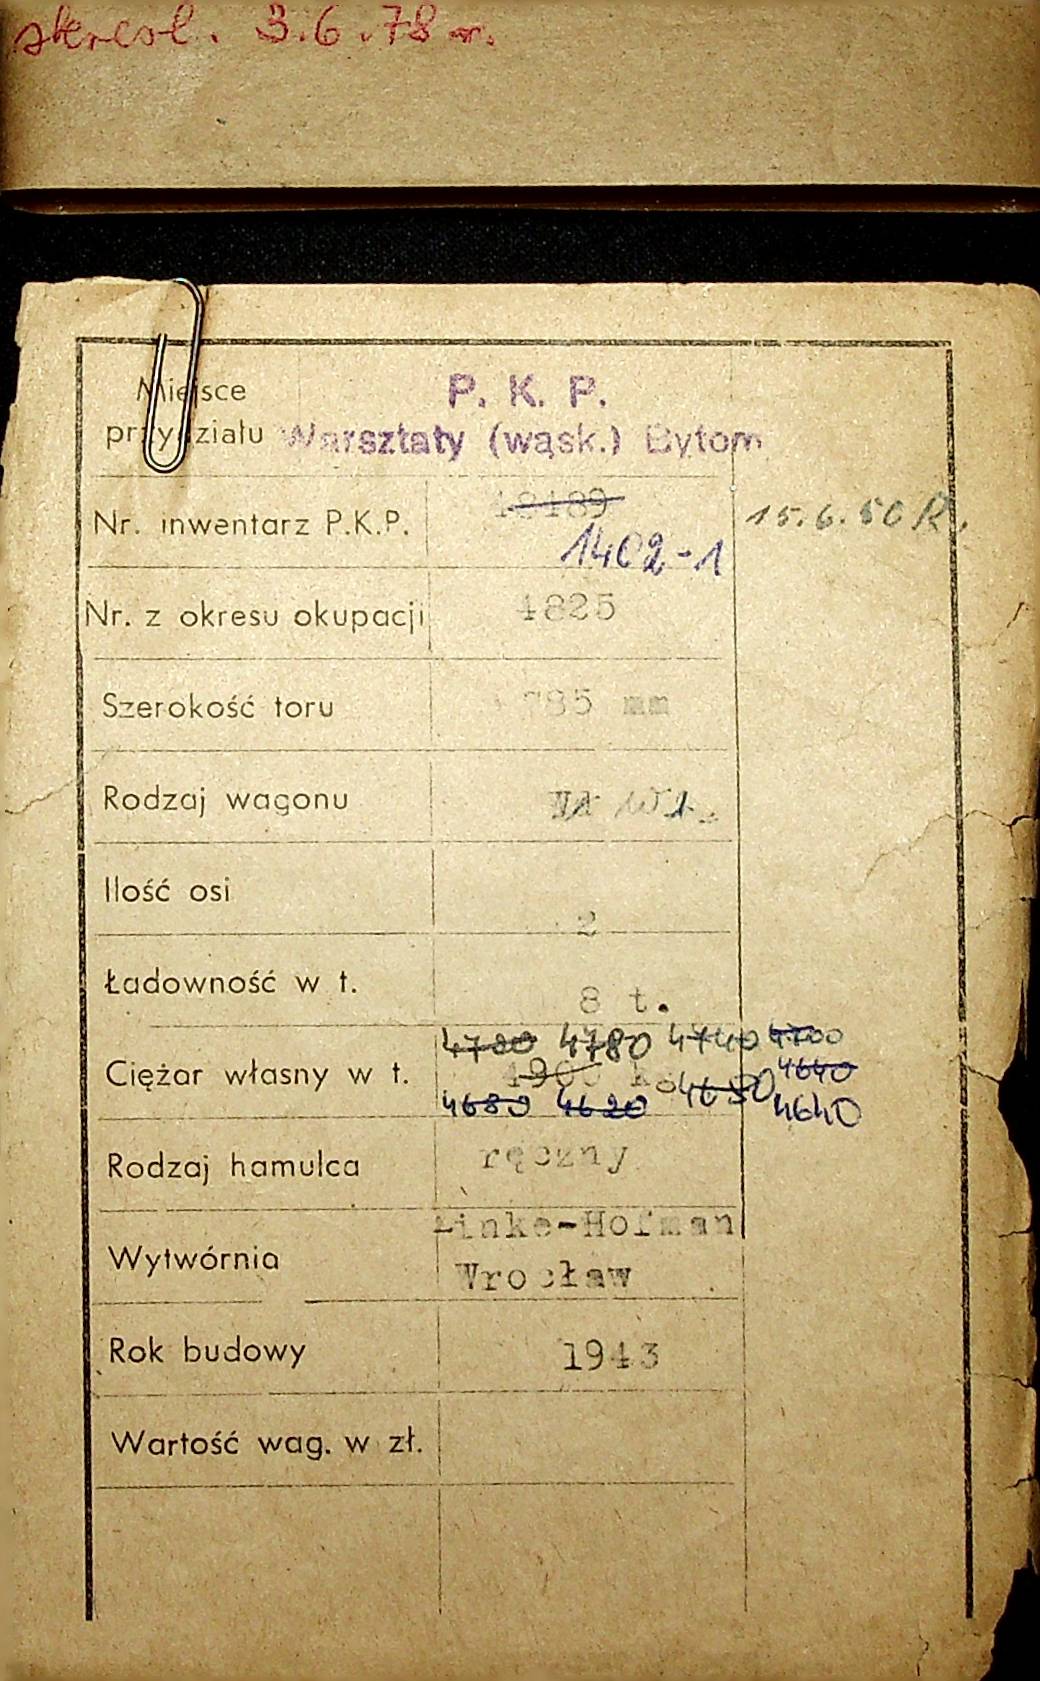 3.6.78 r.
Miejsce
przydziału
P. K. P.
Warsztaty (wąsk.) Bytom
Nr. inwentarz P.K.P.
1402-1
15.6.50 R.
Nr. z okresu okupacji
4825
Szerokość toru
785 mm
Rodzaj wagonu
Ilość osi
2
Ładowność w t.
8 t.
4780 4740 4700
Ciężar własny w t.
4900 kg 4640
4680 4620 4640
Rodzaj hamulca
ręczny
Wytwórnia
Linke-Hofman
Wrocław
Rok budowy
1943
Wartość wag. w zł.